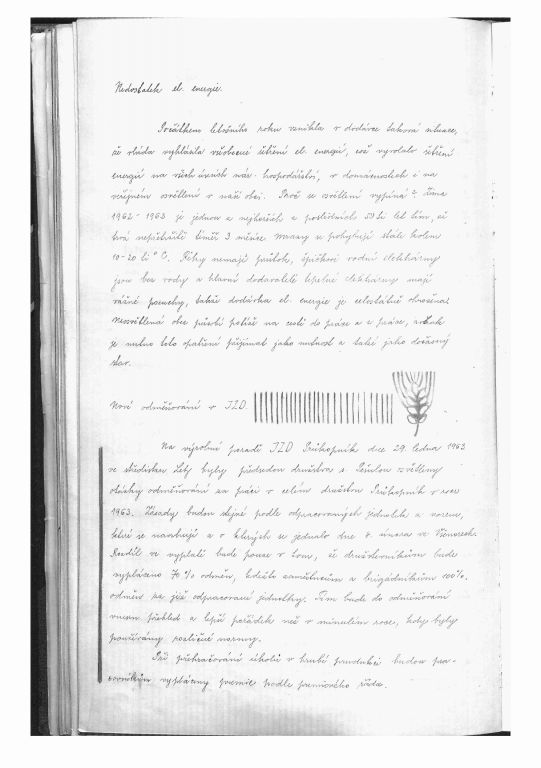 Nedostatek el. energie.
Počátkem letošního roku vznikla v dodávce taková situace,
že vláda vyhlásila všeobecné šetření el. energií, což vyvolalo šetření
energií na všech úsecích nár. hospodářství, v domácnostech i na
veřejném osvětlení v naší obci. Proč se osvětlení vypíná? Zima
1962-1963 je jednou z nejhorších z posledních 50ti let tím, že
trvá nepřetržitě téměř 3 měsíce mrazy se pohybují stále kolem
10-20ti °C. Řeky nemají průtok, špičkové vodní elektrárny
jsou bez vody a hlavní dodavatelé tepelné elektrárny mají
vážné poruchy, takže dodávka el. energie je celostátně ohrožena.
Neosvětlená obec působí potíže na cestě do práce a z práce, avšak
je nutno toto opatření přijímat jako nutnost a také jako dočasný
stav.
Nové odměňování v JZD.
Na výroční poradě JZD Průkopník dne 29. ledna 1963
ve středisku Lety byly předsedou družstva s. osvětleny
otázky odměňování za práci v celém družstvu Průkopník v roce
1963. Zásady budou stejné podle odpracovaných jednotek a norem,
které se navrhují a o kterých se jednalo dne 8. února ve Všenorech.
Rozdíl ve výplatě bude pouze v tom, že družstevníkům bude
vypláceno 70% odměn, kdežto zaměstnancům a brigádníkům 100%
odměn za již odpracované jednotky. Tím bude do odměňování
vnesen přehled a lepší pořádek než v minulém roce, kdy byly
používány rozličné normy.
Při překračování úkolů v hrubé produkci budou pra-
covníkům vypláceny premie podle premiového řádu.